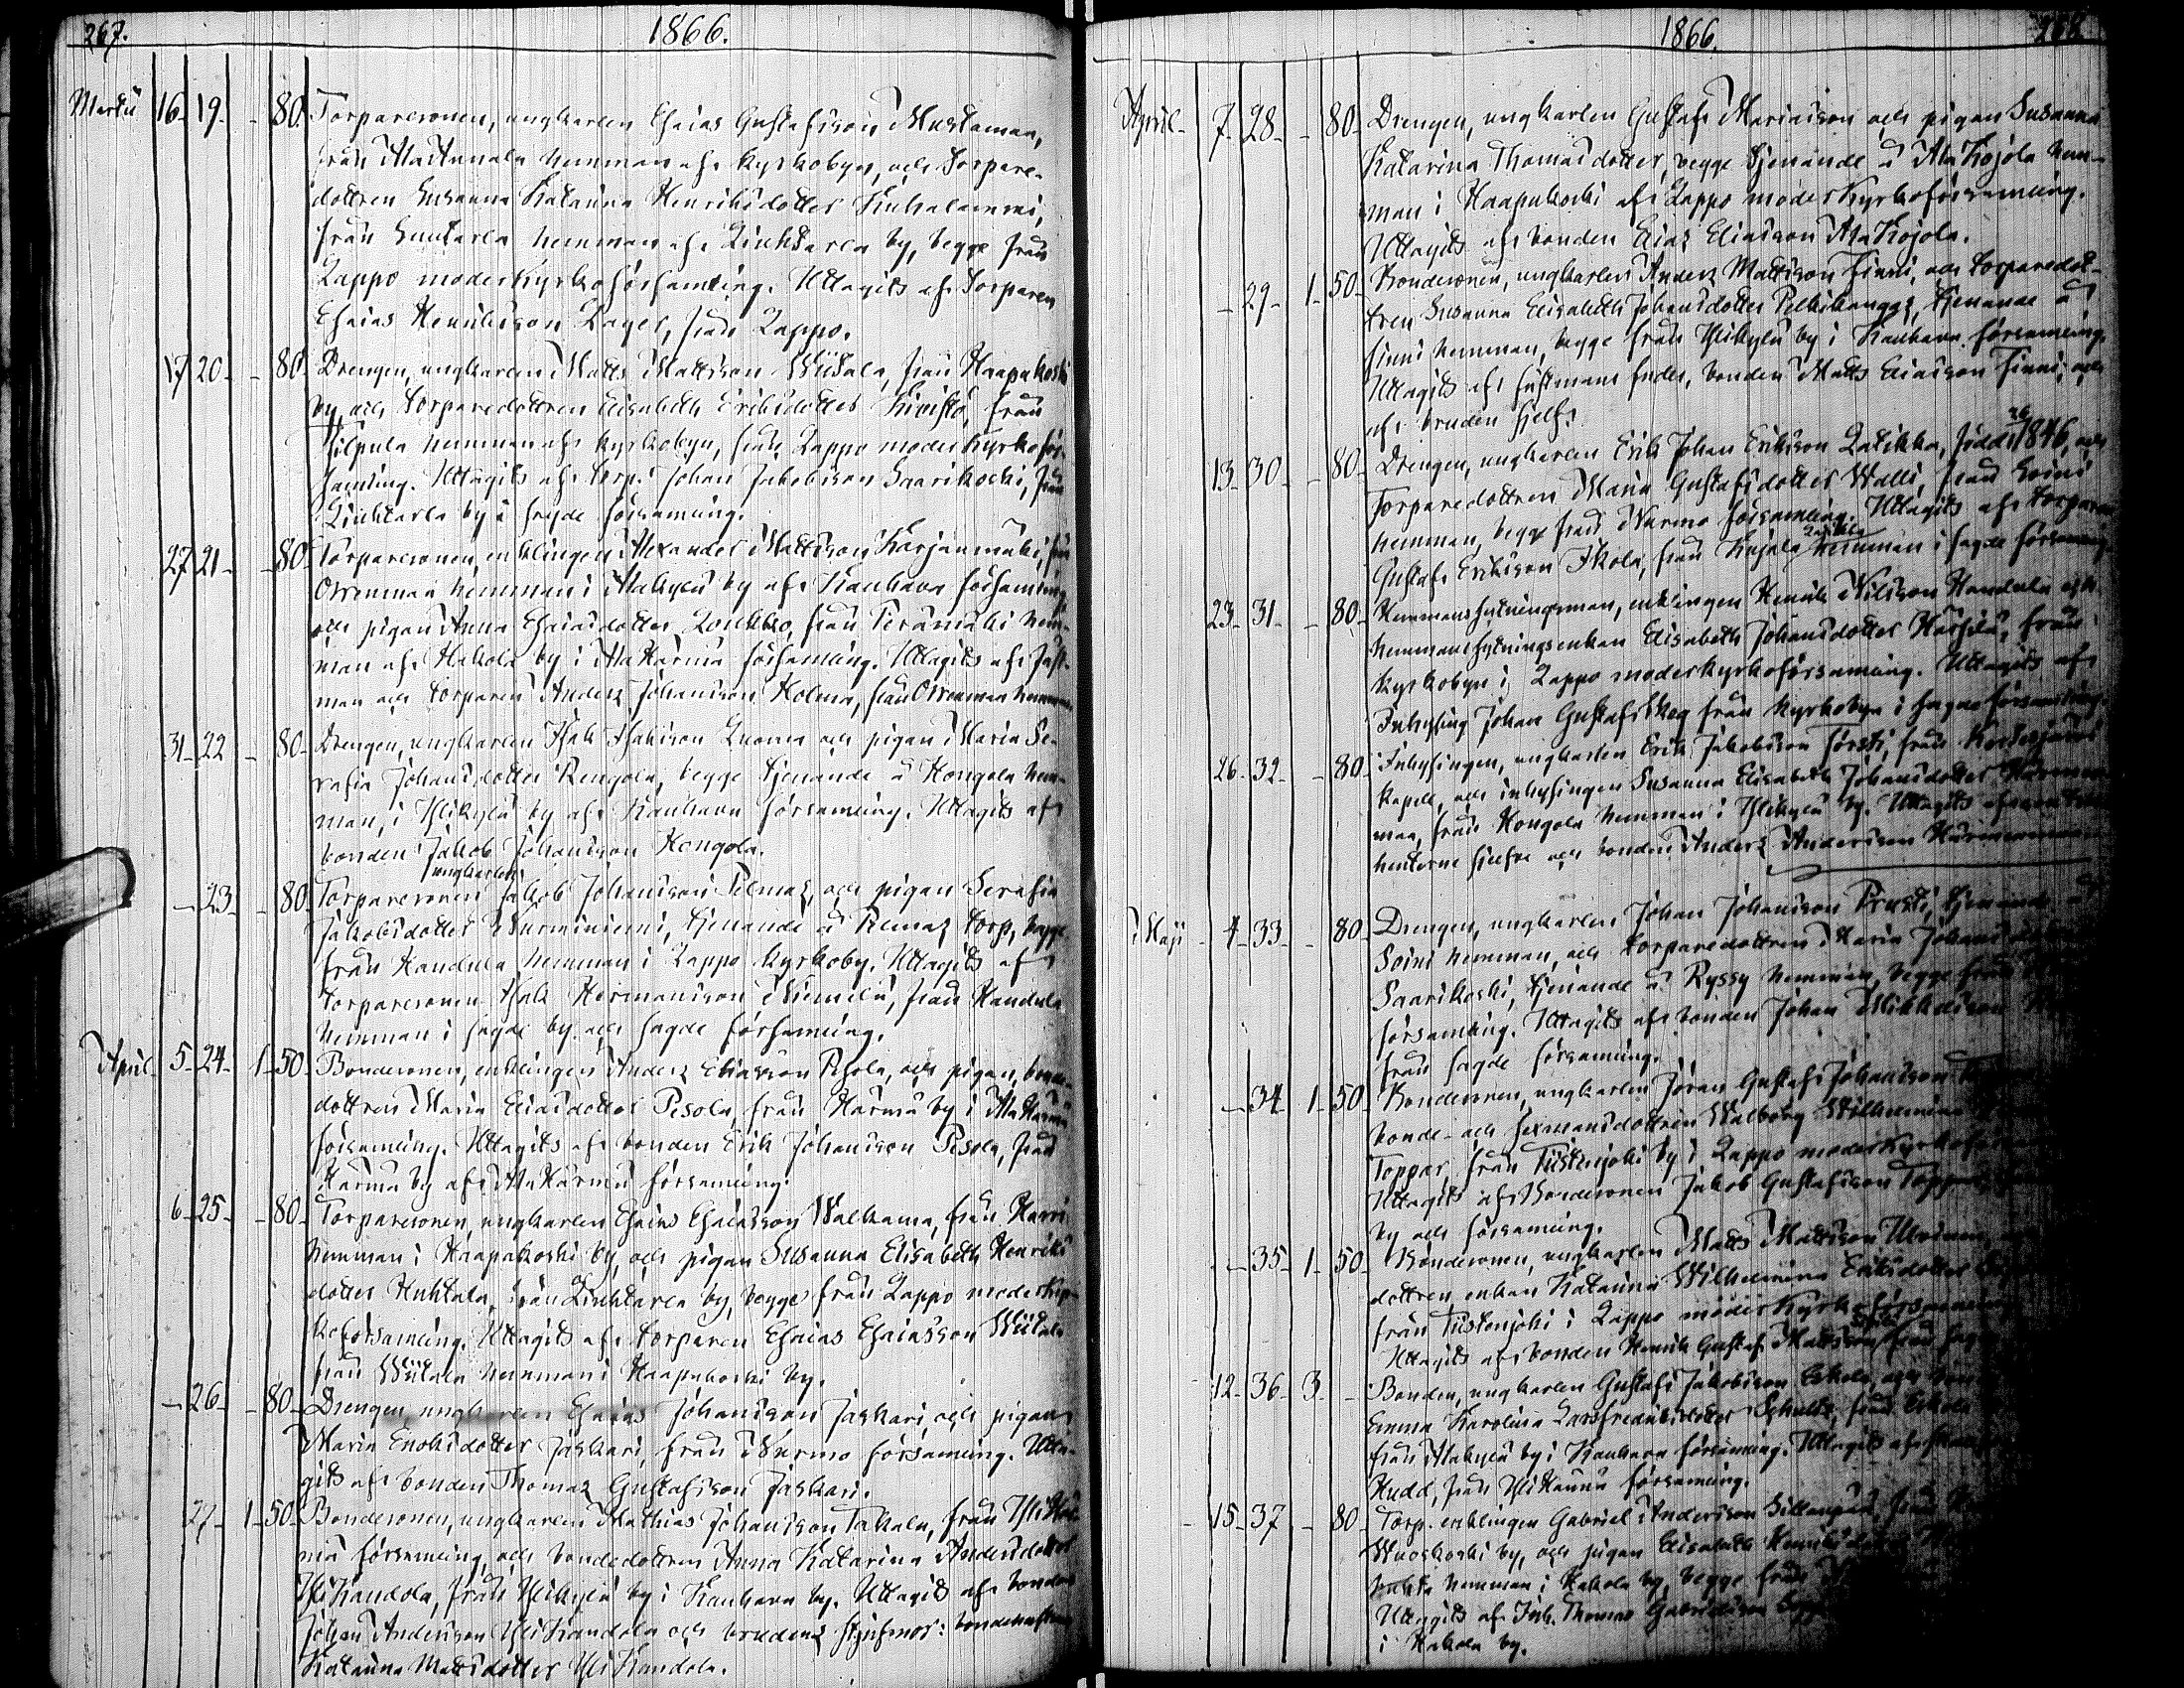 267.
1866.
Martii 16 19 - 80. Torparesonen, ungkarlen Esaias Gustafsson Mustamaa,
från AlaAnnala hemman af Kyrkobyn, och torpare-
dottren Susanna Katarina Henriksdotter Kuhalammi,
från Luutarla hemman af Liuhtarla by, begge från
Lappo moderkyrkoförsamling. Uttagits af Torparen
Esaias Henriksson Lager, från Lappo.
17 20 - 80. Drengen, ungkarlen Matts Mattsson Wiitala, från Haapakoski
by, och torparedottren Elisabeth Eriksdotter Kivistö, från
Filpula hemman af Kyrkobyn, från Lappo moderkyrkoför-
samling. Uttagits af torp. Johan Jakobsson Saarikoski, från
Liuhtarla by i sagde församling.
27 21 - 80 Torparesonen, enklingen Alexander Mattsson Karjanmäki, från
Orrenmaa hemman i Alakylä by af Kauhava församling,
och pigan Anna Esaiasdotter Loukko, från Perämäki hem-
man af Hakola by i AlaHärmä församling. Uttagits af fast-
man och torparen Anders Johansson Holma, från Orrenmaa hemman
31 22 - 80 Drengen, ungkarlen Isak Isaksson Luoma och pigan Maria Se-
rafia Johansdotter Rengola, begge tjenande å Hongola hem-
man, i Ylikylä by af Kauhava församling. Uttagits af
bonden Jakob Johansson Hongola.
ungkarlen
- 23 - 80 Torparesonen Jakob Johansson Pelmas, och pigan Serafia
Jakobsdotter Nurminiemi, tjenande å Pelmas torp, begge
från Kandula hemman i Lappo Kyrkoby. Uttagits af
torparesonen Isak Hermansson Niemelä, från Kandula
hemman i sagde by och sagde församling.
April 5 24 1 50 Bondesonen, enklingen Anders Eliasson Pesola, och pigan, bonde-
dottren Maria Eliasdotter Pesola, från Härmä by i AlaHärmä
församling. Uttagits af bonden Erik Johansson Pesola, från
Härmä by af AlaHärmä församling.
6 25 - 80 Torparesonen, ungkarlen Esaias Esaiasson Walkama, från Harri
hemman i Haapakoski by, och pigan Susanna Elisabeth Henriks-
dotter Huhtala, från Liuhtarla by, begge från Lappo moderkyr-
koförsamling. Uttagits af torparen Esaias Esaiasson Wiitala
från Wiitala hemman i Haapakoski by.
- 26 - 80 Drengen, ungkarlen Esaias Johansson Jaskari, och pigan
Maria Enoksdotter Jaskari, från Nurmo församling. Utta-
gits af bonden Thomas Gustafsson Jaskari.
27 1 50 Bondesonen, ungkarlen Mathias Johansson Takala, från YliHär-
mä församling, och bondedottren Anna Katarina Andersdotter
YliKandola, från Ylikylä by i Kauhava by. Uttagits af bonden
Johan Andersson YliKandola och brudens styfmor: bondenkan
Katarina Mattsdotter YliKandola.
1866.
April 7 28 - 80 Drengen, ungkarlen Gustaf Mariasson och pigan Susanna
Katarina Thomasdotter, begge tjenande å AlaKojola hem-
man i Haapakoski af Lappo moderkyrkoförsamling.
Uttagits af bonden Elias Eliasson AlaKojola.
- 29 1 50 Bondesonen, ungkarlen Anders Mattsson Finni, och torparedot-
tren Susanna Elisabeth Johansdotter Pelkikangas, tjenande å
Finni hemman, begge från Ylikylä by i Kauhava församling.
Uttagits af fästmans fader, bonden Matts Eliasson Finni, och
af bruden sjelf.
13 30 - 80 Drengen, ungkarlen Erik Johan Eriksson Latikka, född 1846, och
Torparedottren Maria Gustafsdotter Walli, från Soini
hemman, begge från Nurmo församling. Uttagits af torparen
Gustaf Eriksson Ikola, från Kujala hemman i sagde församling.
23 31 - 80 Hemmanssytningsman, enklingen Henrik Nilsson Kandula och
hemmanssytningsenkan Elisabeth Johansdotter Harsila, från
Kyrkobyn i Lappo moderkyrkoförsamling. Uttagits af
Inhysing Johan Gustaf Skog från Kyrkobyn i sagde församling
26 32 - 80 Inhysingen, ungkarlen Erik Jakobsson Försti, från Kortesjärvi
kapell, och inhysingen Susanna Elisabeth Johansdotter
maa, från Hongola hemman i Ylikylä by. Uttagits af
henterne sjelfve och bonden Anders Andersson
Maji 4 33 - 80 Drengen, ungkarlen Johan Johansson Prusti, tjenande å
Soini hemman, och torparedottren Maria Johans
Saarikoski, tjenande å Ryssy hemman, begge från
församling. Uttagits af bonden Johan Mikkelsson
från sagde församling.
- 34 1 50 Bondesonen, ungkarlen Jöran Gustaf Johansson
bonde- och sexmansdottren Walborg Wilhelmina
Toppar, från Tiistenjoki by i Lappo moderkyrkoförs
Uttagits af bondesonen Jakob Gustafsson Toppar,
by och församling.
- 35 1 50 Bondesonen, ungkarlen Matts Mattsson
dottren enkan Katarina Wilhelmina Eriksdotter
från Tiistenjoki i Lappo moderkyrkoförsamling
Uttagits af bonden Henrik Gustaf Mattsson från sagde
12 36 3 - Bonden, ungkarlen Gustaf Jakobsson Eskola, och
Emma Karolina Larsfredriksdotter Schultz, från Eskola
från Alakylä by i Kauhava församling. Uttagits af
Hudd, från YliHärmä församling.
15 37 - 80 Torp. enklingen Gabriel Andersson Sillanpää, från
Wuoskoski by, och pigan Elisabeth Henriksdotter
hemman i Hakola by, begge från
Uttagits af Inh. Thomas Gabrielsson
i Hakola by.